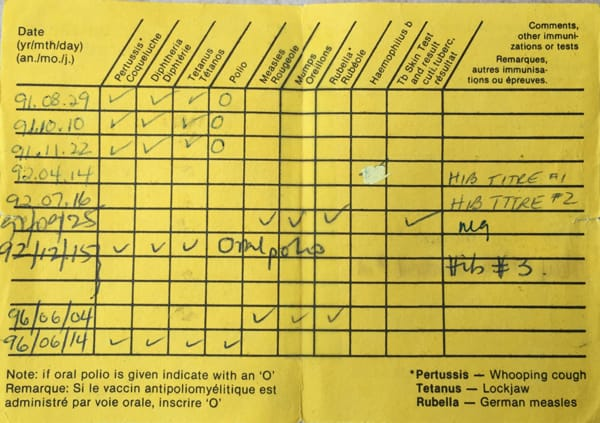 Date
(yr/mth/day)
(an./mo./j.)
Pertussis*
Coqueluche
Diphtheria
Diphtérie
Tetanus
Tétanos
Polio
Measles
Rougeole
Mumps
Oreillons
Rubella*
Rubéole
Haemophilus b
Tb Skin Test
and result
cuti. tuberc.
résultat
Comments,
other immuni-
zations or tests
Remarques,
autres immunisa-
tions ou épreuves.
91.08.29 ✓ ✓ ✓ O
91.10.10 ✓ ✓ ✓ O
91.11.22 ✓ ✓ ✓ O
92.04.14 HIB TITRE #1
92.07.16 HIB TITRE #2
92/09/25 ✓ ✓ ✓ ✓ neg
92/12/15 ✓ ✓ ✓ Oral polio Hib #3.
96/06/04 ✓ ✓ ✓
96/06/14 ✓ ✓ ✓ ✓
Note: if oral polio is given indicate with an ‘O’
Remarque: Si le vaccin antipoliomyélitique est
administré par voie orale, inscrire ‘O’
*Pertussis — Whooping cough
Tetanus — Lockjaw
Rubella — German measles